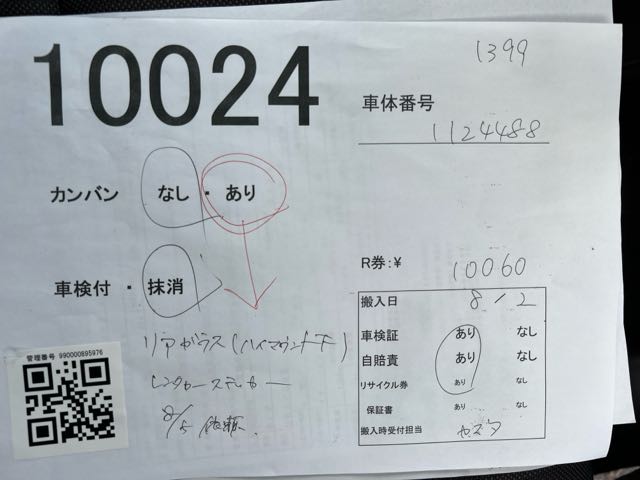 10024
1399
車体番号
1124488
カンバン なし ・ あり
車検付 ・ 抹消
R券:¥ 10060
搬入日 8/2
車検証 あり なし
自賠責 あり なし
リサイクル券 あり なし
保証書 あり なし
搬入時受付担当 ヤスダ
リアガラス(ハイマウント下)
レンタカーステッカー
8/5 依頼.
管理番号 990000895976